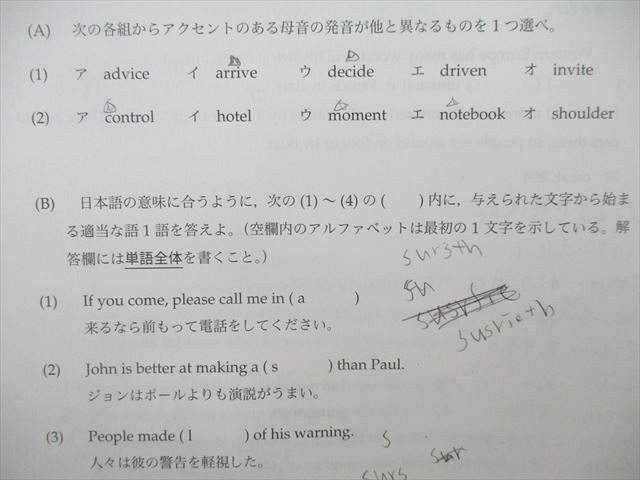 (A) 次の各組からアクセントのある母音の発音が他と異なるものを1つ選べ。
(1) ア advice イ arrive ウ decide エ driven オ invite
(2) ア control イ hotel ウ moment エ notebook オ shoulder
(B) 日本語の意味に合うように，次の (1) ～ (4) の ( ) 内に，与えられた文字から始ま
る適当な語1語を答えよ。（空欄内のアルファベットは最初の1文字を示している。解
答欄には単語全体を書くこと。）
sursth
sh
(1) If you come, please call me in ( a )
susrieth
来るなら前もって電話をしてください。
(2) John is better at making a ( s ) than Paul.
ジョンはポールよりも演説がうまい。
(3) People made ( l ) of his warning.
s
人々は彼の警告を軽視した。
surs